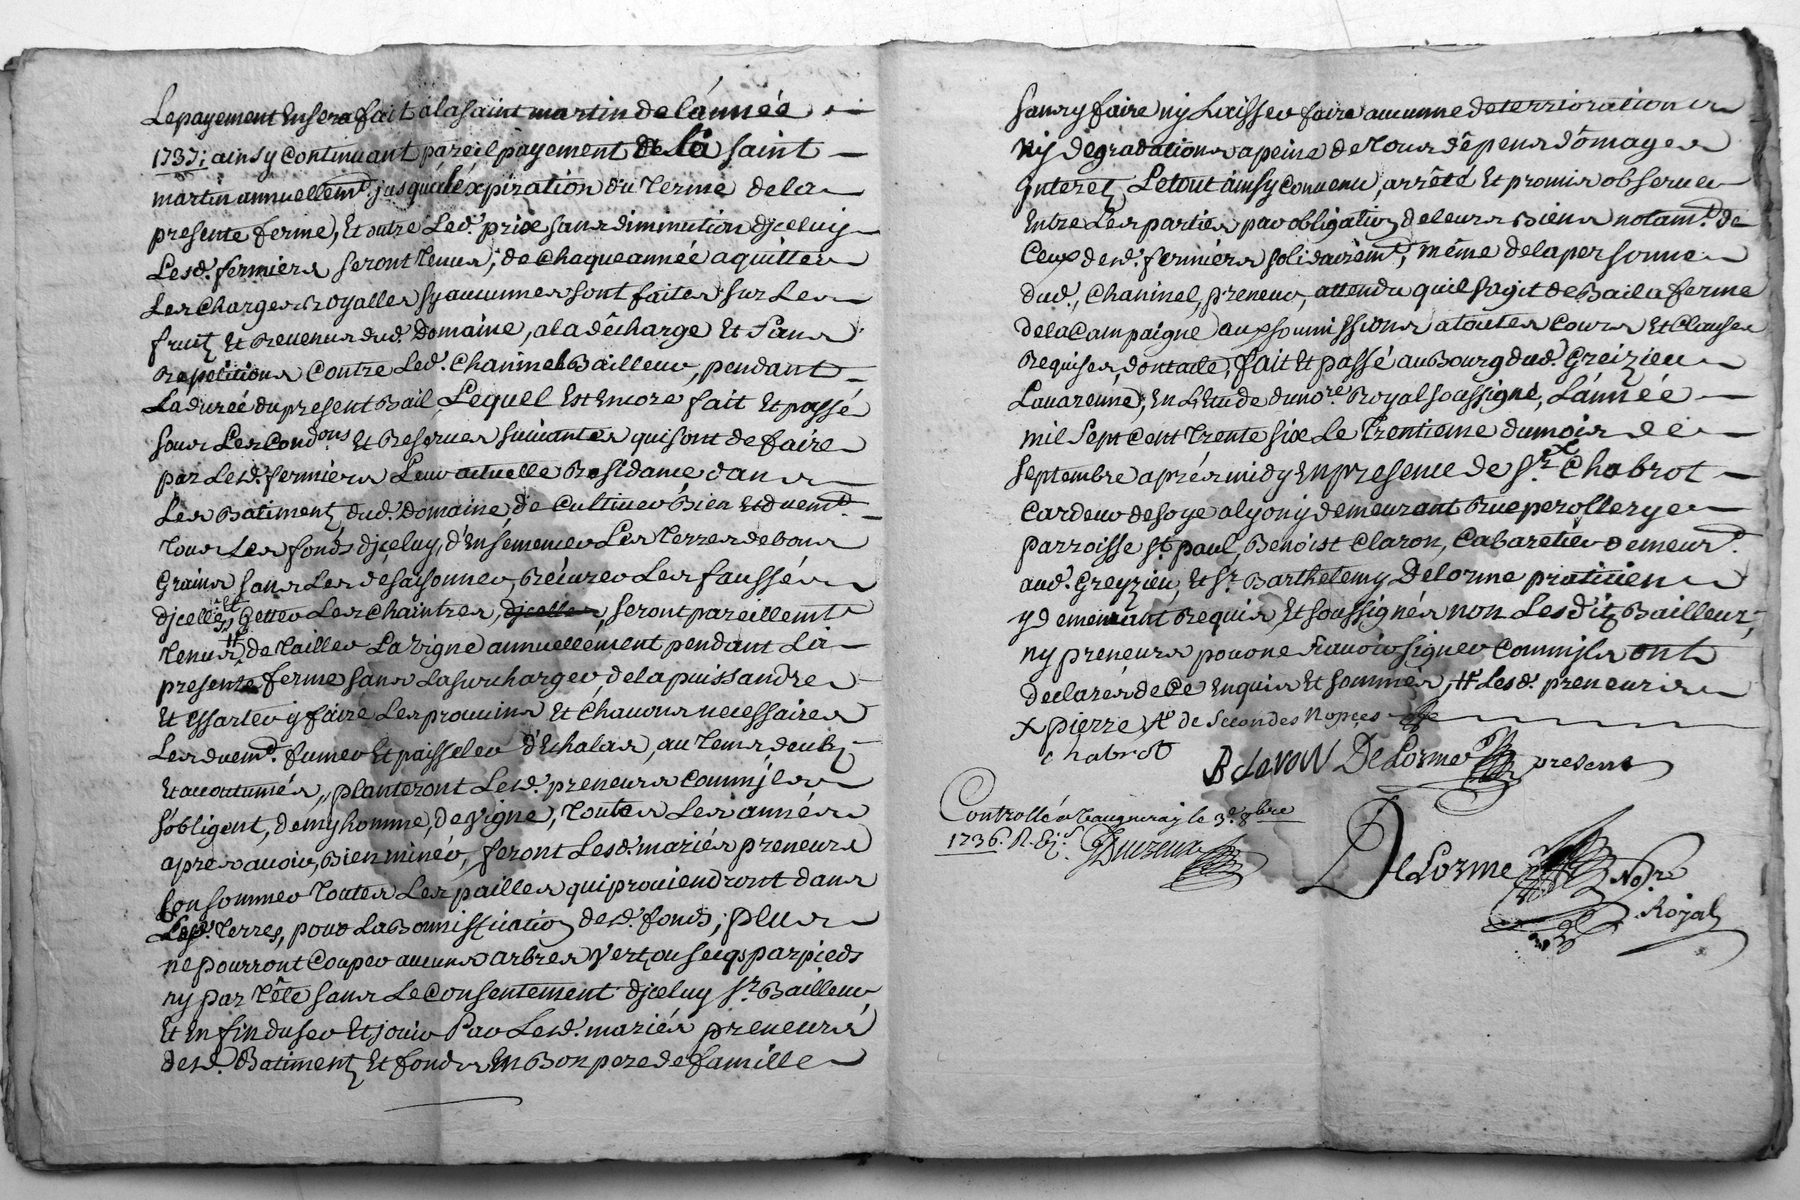 Le payement En sera fait a la saint martin de l'année
1737; ainsy Continuant pareil payement de la saint
martin annuellemt. jusqu'a l'éxpiration du terme de la
presente ferme, Et outre Led. prix sans diminution djceluy
Lesd. fermiers seront tenus, de Chaque année aquitter
Les Charges Royalles sy aucunnes sont faites sur Les
fruitz Et Revenus dud. Domaine, a la décharge Et sans
Repetitions Contre Led. Chaninel Bailleur, pendant
La durée du present Bail, Lequel Est Encore fait Et passé
sous Les Condons. Et Reserves suivantes qui sont de faire
par Lesd. fermiers Leur actuelle Residance, dans
Les Batimentz dud. Domaine, de Cultiver Bien Et duemt.
tous Les fonds djceluy, d'Ensemencer Les terres de bons
Grains sans Les desaisonner, Récurer Les faussés
djcelles Et Getter Les Chaintres, djcelles, seront pareillemt
tenus # de tailler La vigne annuellement pendant La
presente ferme sans La surcharger, de la puissandre
Et Essarter y faire Les prouins Et Chavons necessaires
Les duemt. fumer Et paisseler d'Echalas, au tems deubz
Et accoutumés, planteront Lesd. preneurs Comm'jls
s'obligent, demy homme, de vigne, toutes Les années
apres avoir, Bien miné, feront Lesd. mariés preneurs
Consommer toutes Les pailles qui proviendront dans
Lesd. terres, pour La Bonnisficatioz desd. fonds; plus
ne pourront Couper aucuns arbres vertz ou secqs par pieds
ny par tête sans Le Consentement djceluy sr. Bailleur,
Et Enfin d'user Et jouir Par Lesd. mariés preneurs
desd. Batimentz Et fonds En Bon pere de famille
sans y faire ny Laisser faire aucunne deterrioration
ny dégradations a peine de tous dêpens dômages
jnteretz Le tout ainsy Convenu, arrêté Et promis observer
Entre Les parties par obligatioz de leurs Biens notamt. de
Ceux desd. fermiérs solidairemt, même de la personne
dud. Chaninel, preneur, attendu qu'il s'agit de Bail a ferme
de la Campaigne aux soumissions a toutes Cours Et Clauses
Requises, dont acte, fait Et passé au Bourg dud. Greizieu
Lavarenne, En L'Etude du nore. Royal soussigné, L'année
mil sept Cent trente six Le trentieme du mois de
septembre aprés midy En presence de sr. x Chabrot
Cardeur de soye a lyon y demeurant Rue perollerye
parroisse st. paul, Benoist Claron, Cabaretier demeurt.
aud. Greyzieu, Et sr. Barthelemy Delorme praticien
y demeurant Requis, Et soussignés non Lesditz Bailleur,
ny preneurs pour ne sçavoir signer Comm'jls ont
declarés de Ce Enquis Et sommés, # Lesd. preneurs
x pierre # de secondes Nopces
chabrot
B claron DeLorme present
Controllé a Vaugneray le 3e. 8bre
1736. R.
DeLorme Nore
Royal